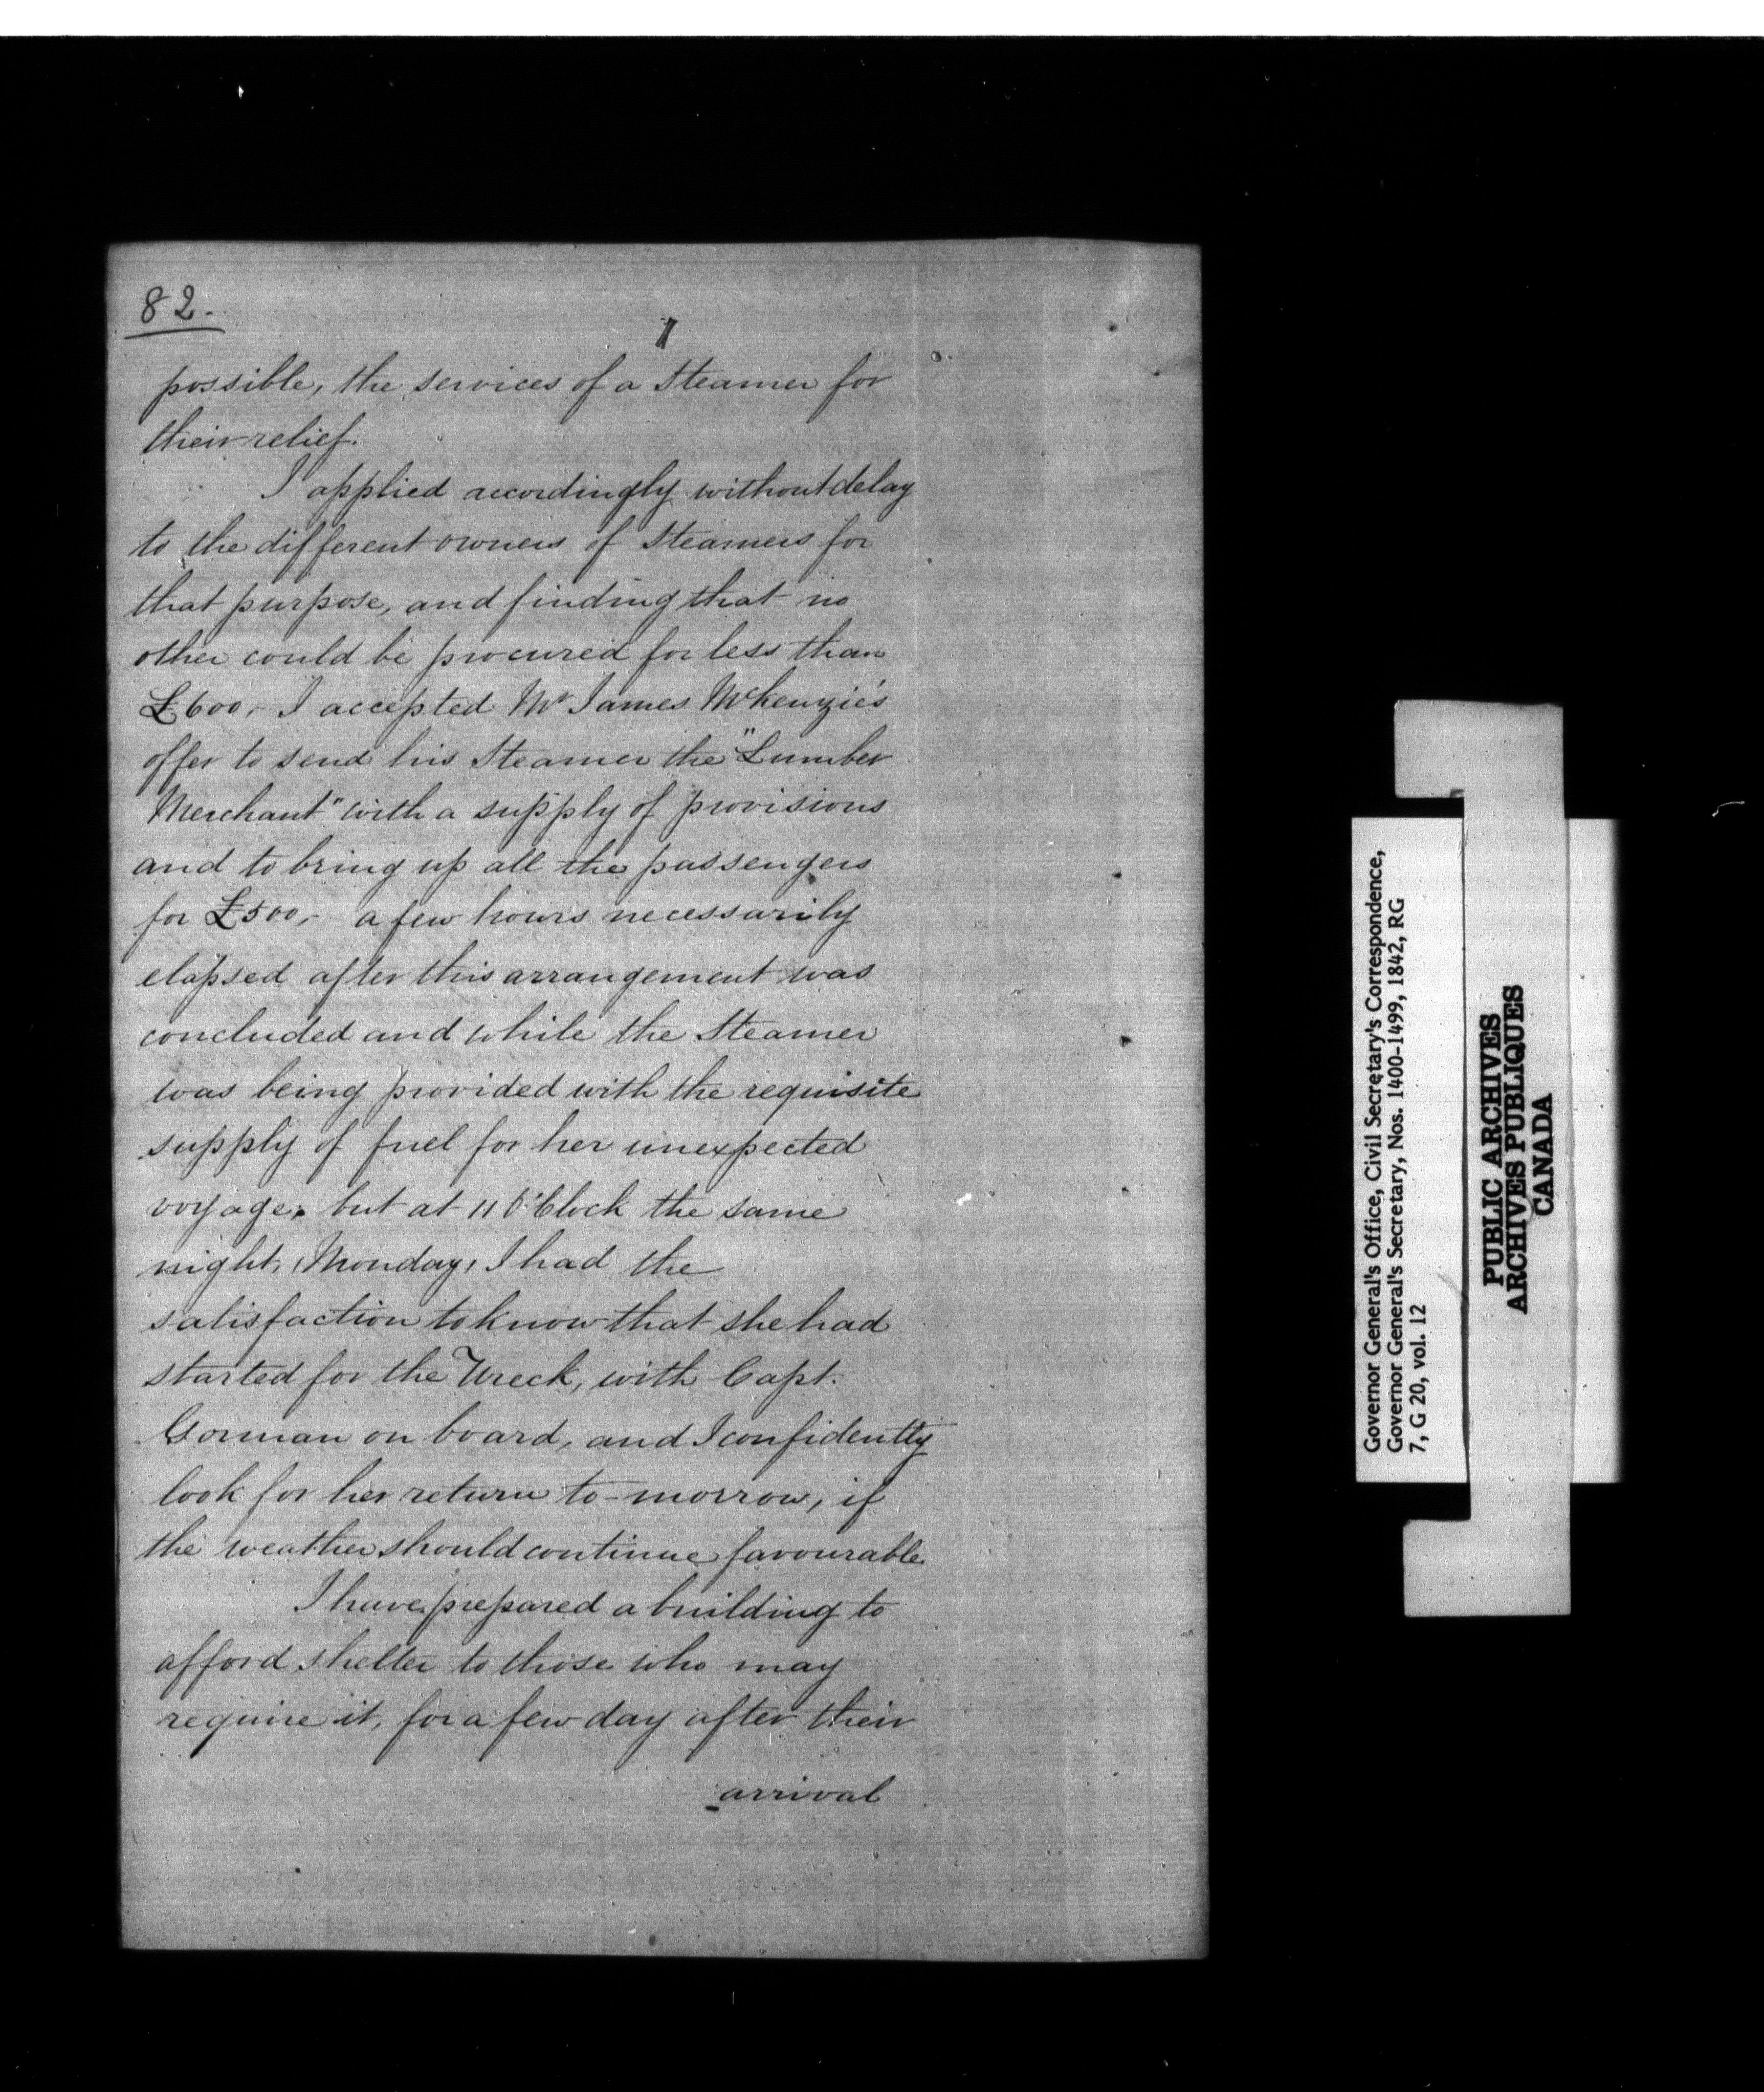 82.
possible, the services of a Steamer for
their relief.
I applied accordingly without delay
to the different owners of Steamers for
that purpose, and finding that no
other could be procured for less than
£600,- I accepted Mr James McKenzie's
offer to send his Steamer the "Lumber
Merchant" with a supply of provisions
and to bring up all the passengers
for £500,- a few hours necessarily
elapsed after this arrangement was
concluded and while the Steamer
was being provided with the requisite
supply of fuel for her unexpected
voyage; but at 11 O'Clock the same
night, Monday, I had the
satisfaction to know that she had
started for the Wreck, with Capt.
Gorman on board, and I confidently
look for her return to-morrow, if
the weather should continue favourable.
I have prepared a building to
afford shelter to those who may
require it, for a few day after their
arrival
Governor General's Office, Civil Secretary's Correspondence,
Governor General's Secretary, Nos. 1400-1499, 1842, RG
7, G 20, vol. 12
PUBLIC ARCHIVES
ARCHIVES PUBLIQUES
CANADA